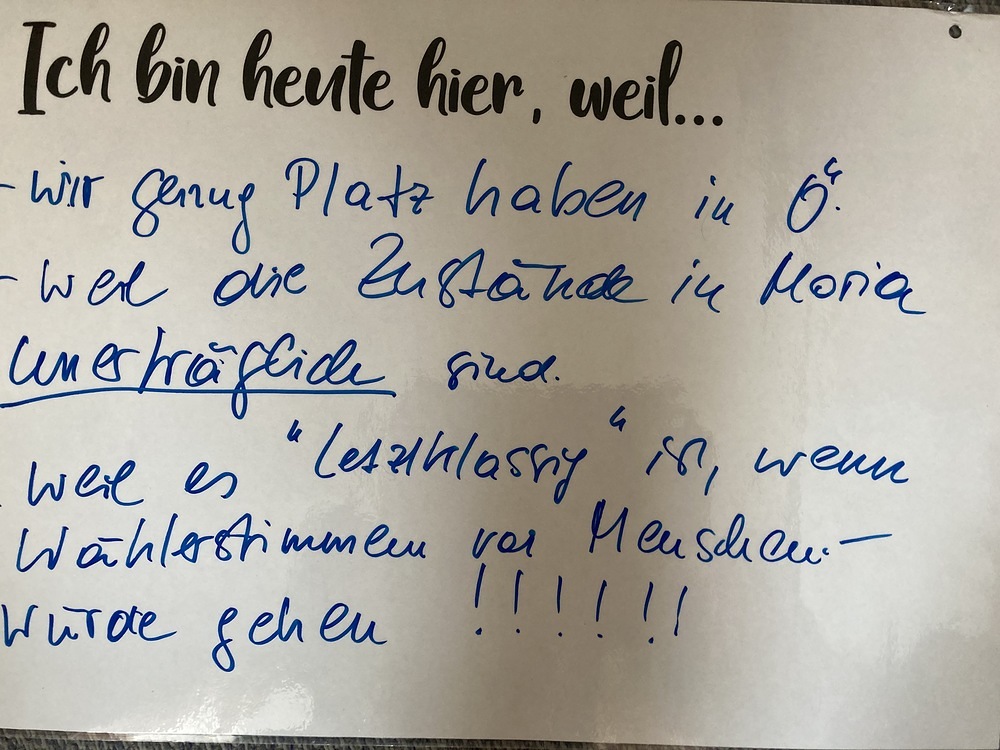 Ich bin heute hier, weil...
- wir genug Platz haben in Ö.
- weil die Zustände in Moria
unerträglich sind.
weil es "letztklassig" ist, wenn
Wählerstimmen vor Menschen-
würde gehen !!!!!!